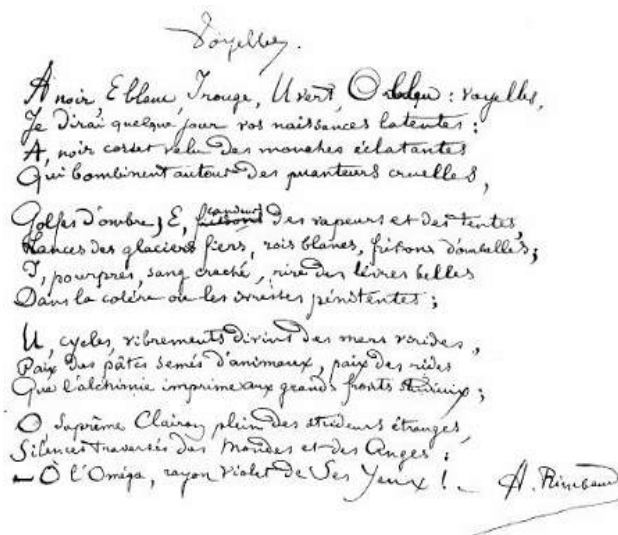 Voyelles.
A noir, E blanc, I rouge, U vert, O bleu : voyelles,
Je dirai quelque jour vos naissances latentes :
A, noir corset velu des mouches éclatantes
Qui bombinent autour des puanteurs cruelles,
Golfes d'ombre ; E, candeurs des vapeurs et des tentes,
Lances des glaciers fiers, rois blancs, frissons d'ombelles ;
I, pourpres, sang craché, rire des lèvres belles
Dans la colère ou les ivresses pénitentes ;
U, cycles, vibrements divins des mers virides,
Paix des pâtis semés d'animaux, paix des rides
Que l'alchimie imprime aux grands fronts studieux ;
O Suprême Clairon plein des strideurs étranges,
Silences traversés des Mondes et des Anges :
— Ô l'Oméga, rayon violet de Ses Yeux ! —
A. Rimbaud